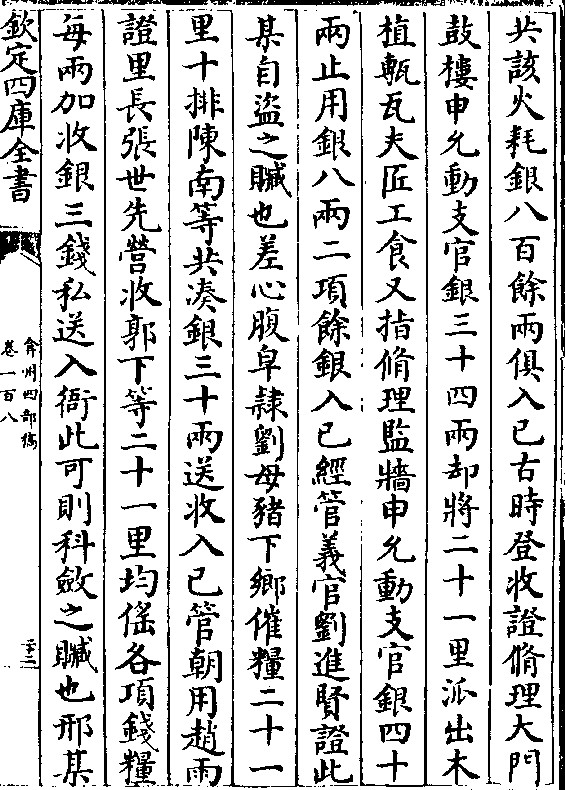 共該火耗銀八百餘兩俱入已古時登收證脩理大門
鼓樓申允動支官銀三十四兩却將二十一里派出木
植甎瓦夫匠工食又指脩理監牆申允動支官銀四十
兩止用銀八兩二項餘銀入已經管義官劉進賢證此
某自盜之贓也差心腹皁隸劉母豬下鄉催糧二十一
里十排陳南等共湊銀三十兩送收入已管朝用趙雨
證里長張世先營收郭下等二十一里均徭各項錢糧
每兩加收銀三錢私送入衙此可則科斂之贓也邢某
欽定四庫全書
弇州四部稿
卷一百八
二十二